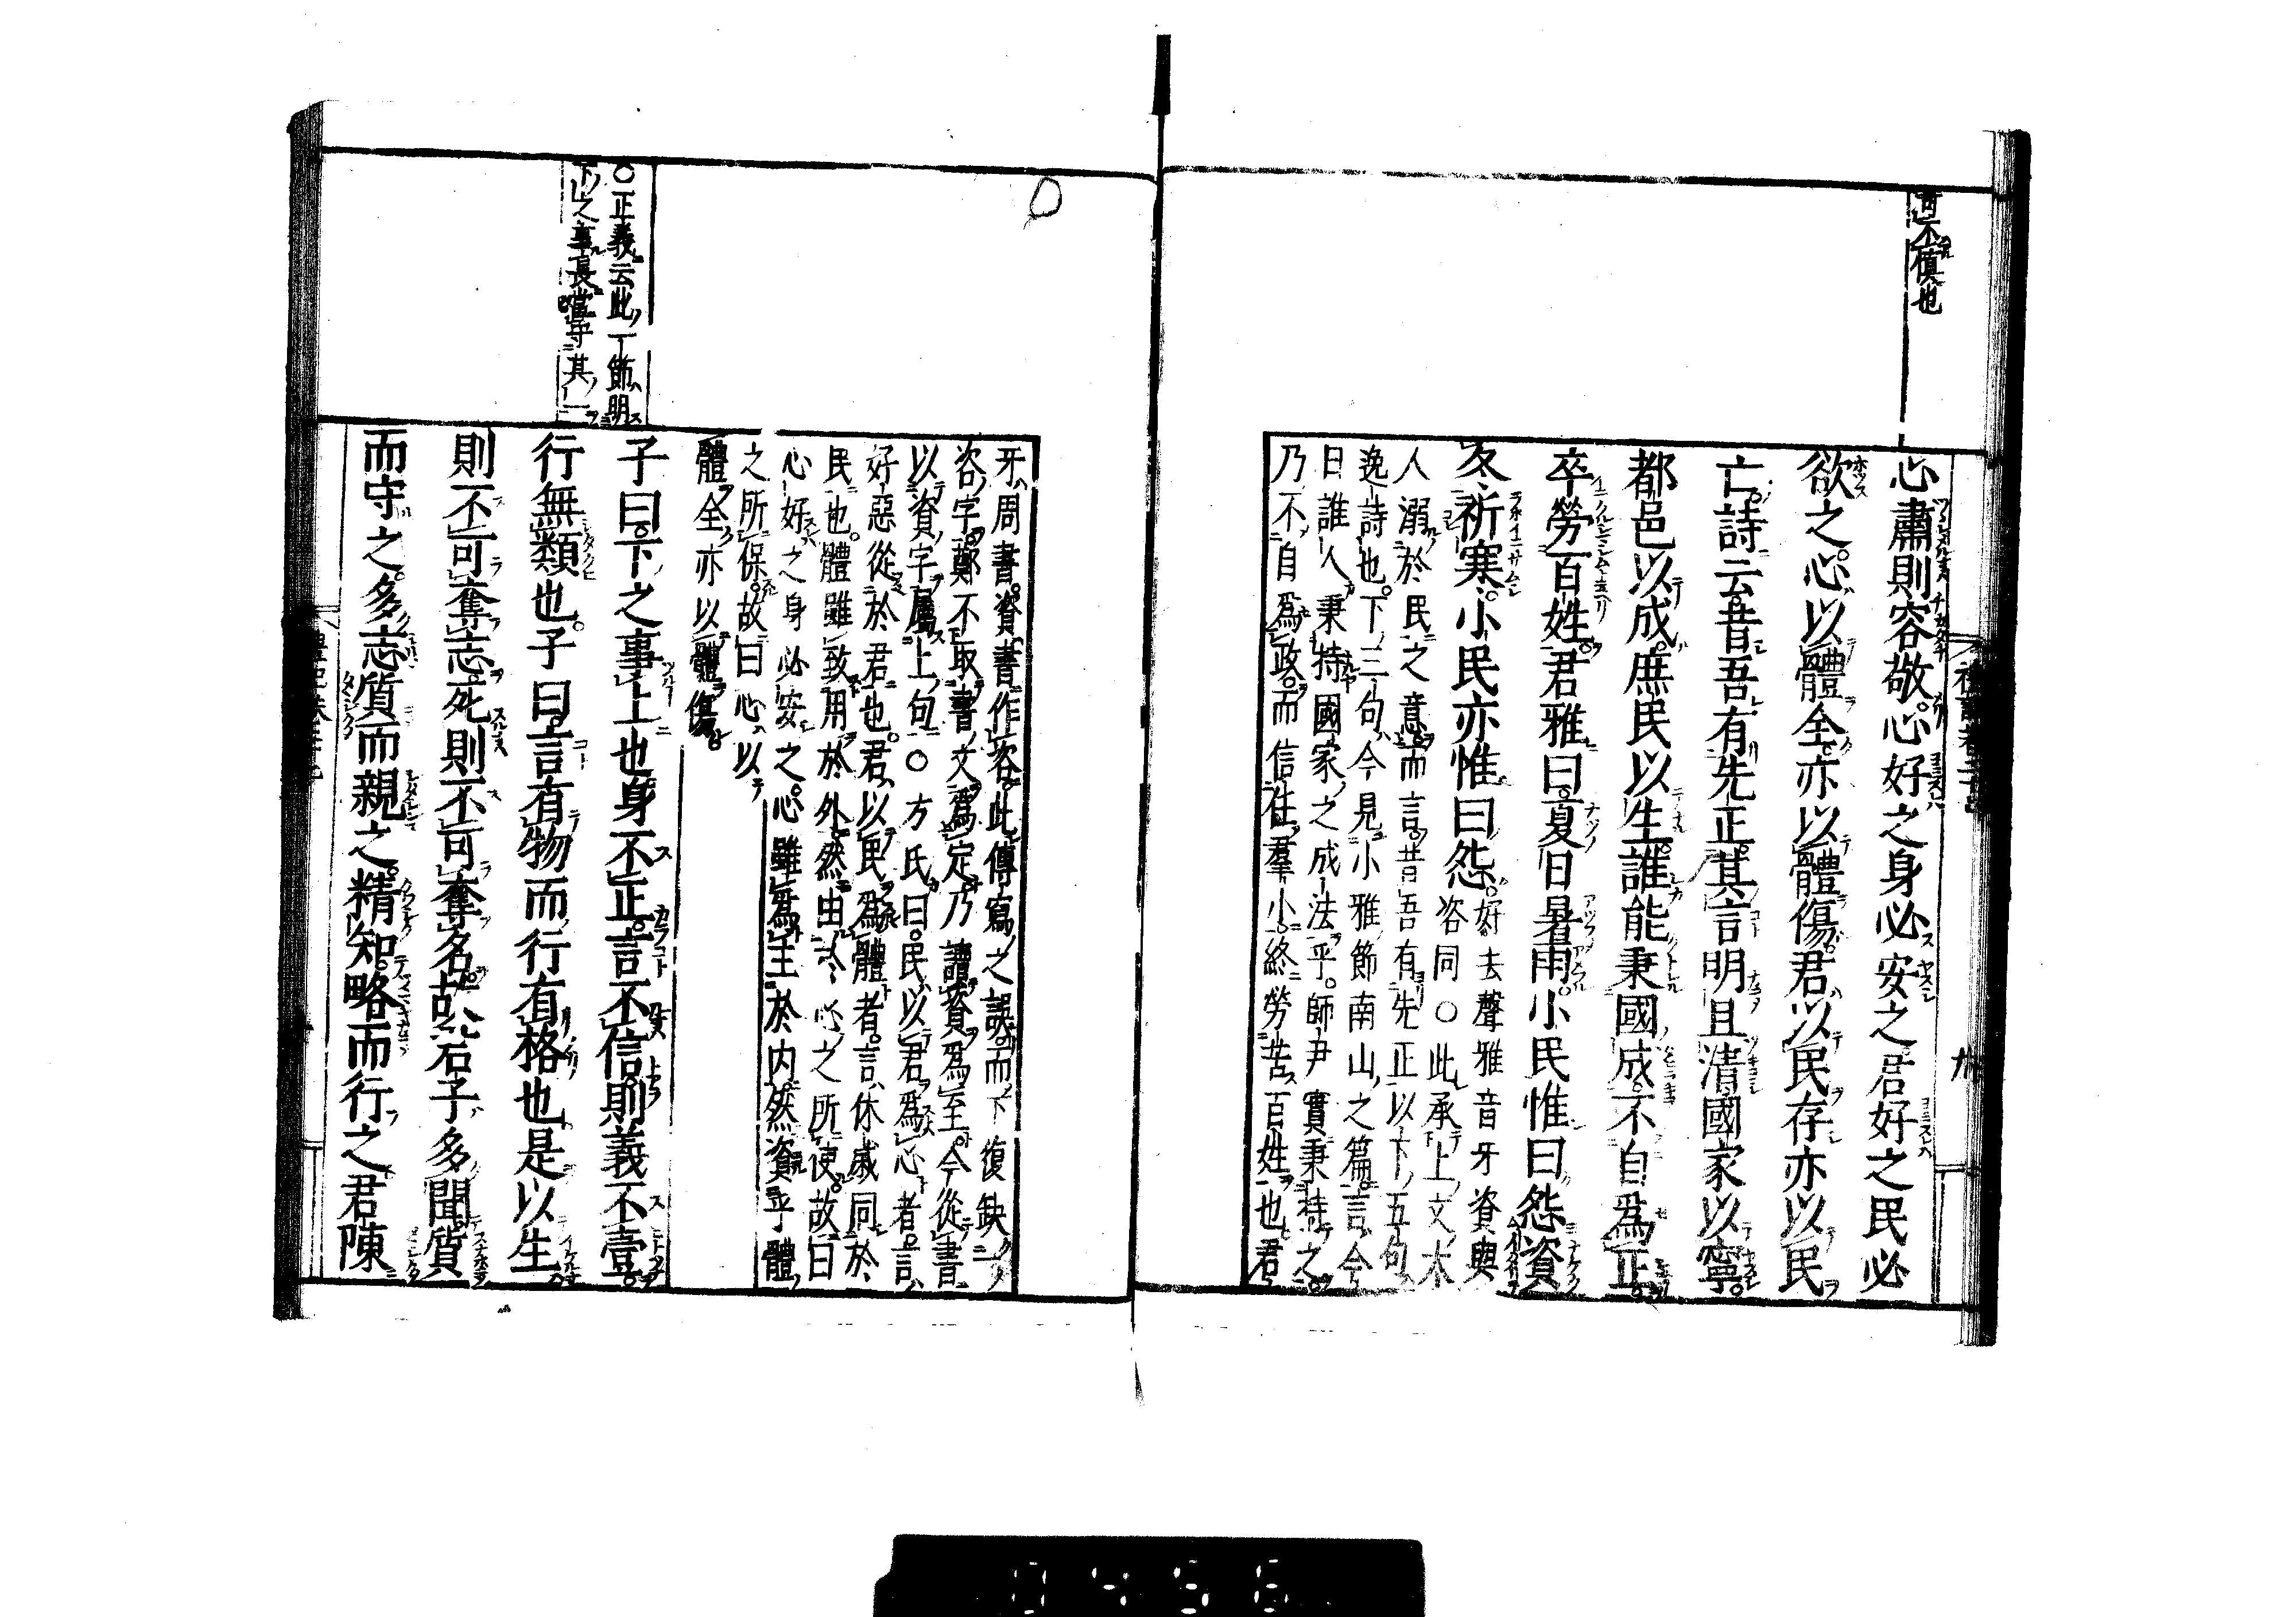 不慎也
心肅則容敬心好之身必安之君好之民必
欲之心以體全亦以體傷君以民存亦以民
亡詩云昔吾有先正其言明且清國家以寧
都邑以成庶民以生誰能秉國成不自爲正
卒勞百姓君雅曰夏日暑雨小民惟曰怨資
冬祈寒小民亦惟曰怨
好去聲雅音牙資與
咨同○此承上文大
人溺於民之意而言昔吾有先正以下五句
逸詩也下三句今見小雅節南山之篇言今
日誰人秉持國家之成法乎師尹實秉持之
乃不自爲政而信任羣小終勞苦百姓也君
牙周書資書作咨此傳寫之誤而下復缺一
咨字鄭不取書文爲定乃讀資爲至今從書
以資字屬上句○方氏曰民以君爲心者言
好惡從於君也君以民爲體者言休戚同於
民也體雖致用於外然由於心之所使故曰
心好之身必安之心雖爲主於内然資乎體
之所保故曰心以
體全亦以體傷
○正義云此一節明
下之事上當守其一
子曰下之事上也身不正言不信則義不壹
行無類也子曰言有物而行有格也是以生
則不可奪志死則不可奪名故君子多聞質
而守之多志質而親之精知略而行之君陳